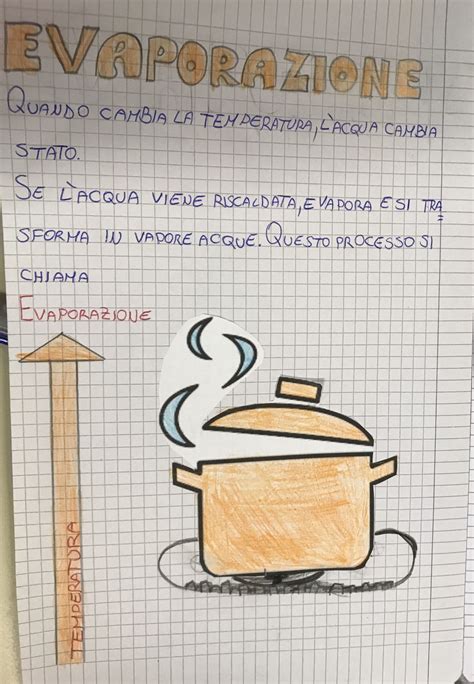 EVAPORAZIONE
QUANDO CAMBIA LA TEMPERATURA, L'ACQUA CAMBIA
STATO.
SE L'ACQUA VIENE RISCALDATA, EVAPORA E SI TRA=
SFORMA IN VAPORE ACQUE. QUESTO PROCESSO SI
CHIAMA
EVAPORAZIONE
TEMPERATURA